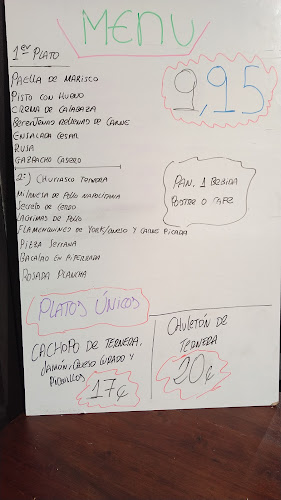 MENU
1er PLATO
9,95
PAELLA DE MARISCO
PISTO CON HUEVO
CREMA DE CALABAZA
BERENJENAS RELLENAS DE CARNE
ENSALADA CESAR
RUSA
GAZPACHO CASERO
2º) CHURRASCO TERNERA
MILANESA DE POLLO NAPOLITANA
SECRETO DE CERDO
LAGRIMAS DE POLLO
FLAMENQUINES DE YORK/QUESO Y CARNE PICADA
PIZZA SERRANA
BACALAO EN PIPERRADA
ROSADA PLANCHA
PAN, 1 BEBIDA
POSTRE O CAFE
PLATOS ÚNICOS
CACHOPO DE TERNERA,
JAMÓN, QUESO CURADO Y
PIQUILLOS
17€
CHULETÓN DE
TERNERA
20€